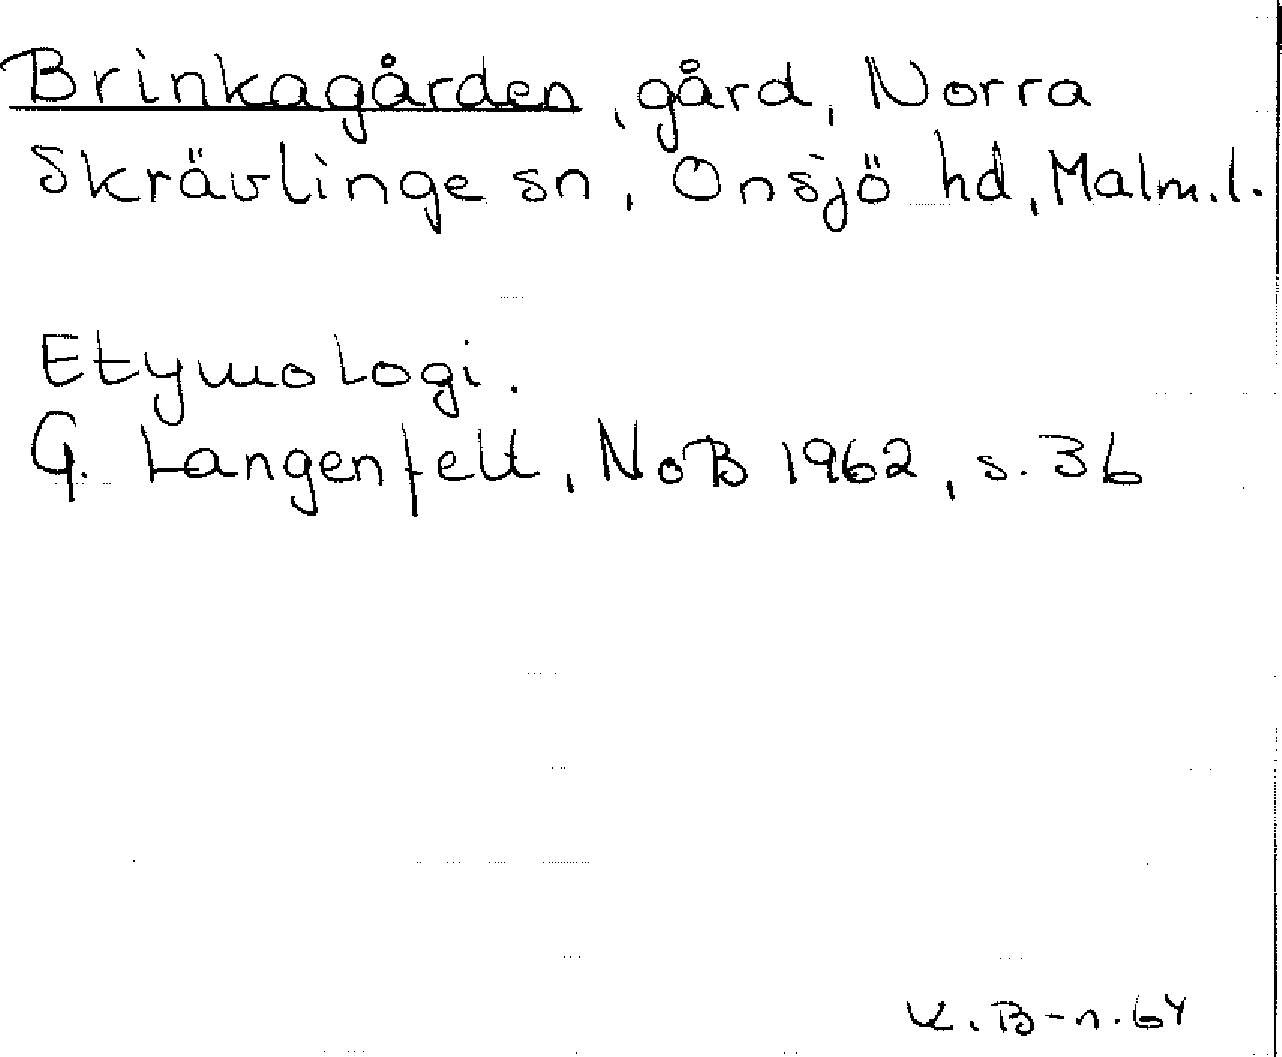 Brinkagården, gård, Norra
Skrävlinge sn, Onsjö hd, Malm.l.
Etymologi.
G. Langenfelt, NoB 1962, s. 36
K. B-n. 64